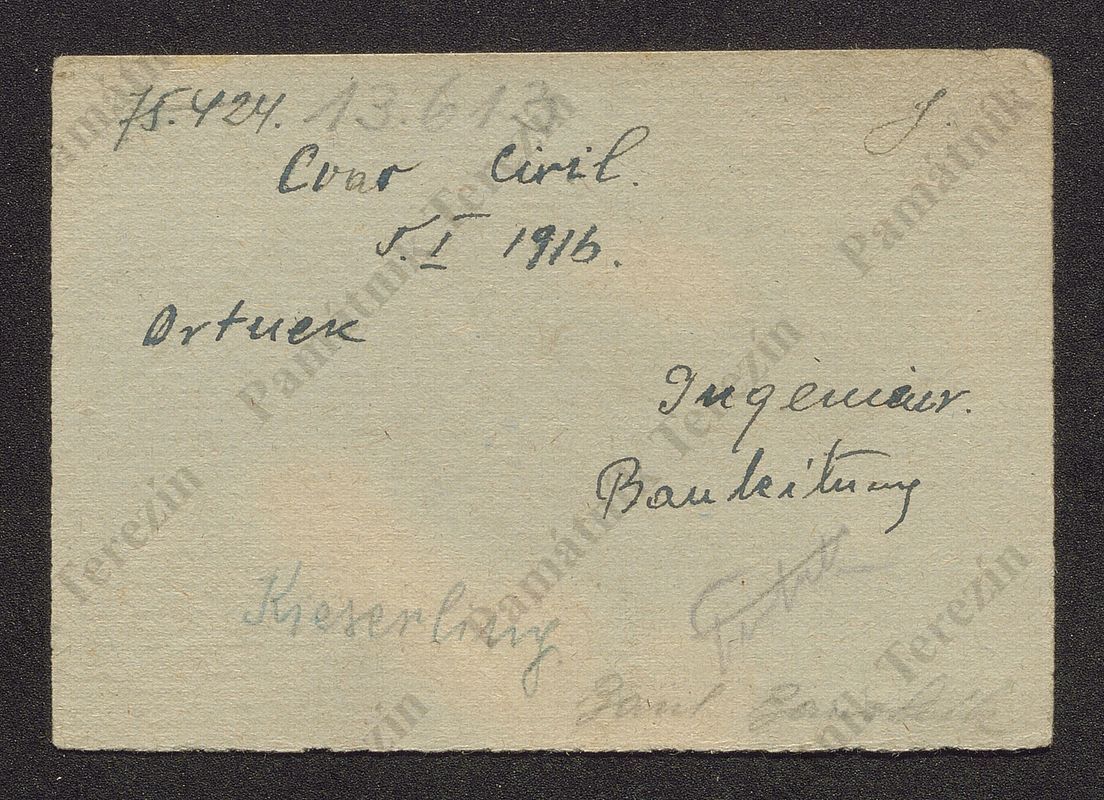 75.424. 13.613 J.
Cvar Ciril.
5. I 1916.
Ortnek
Ingenieur.
Bauleitung
Kieserling
Památník Terezín